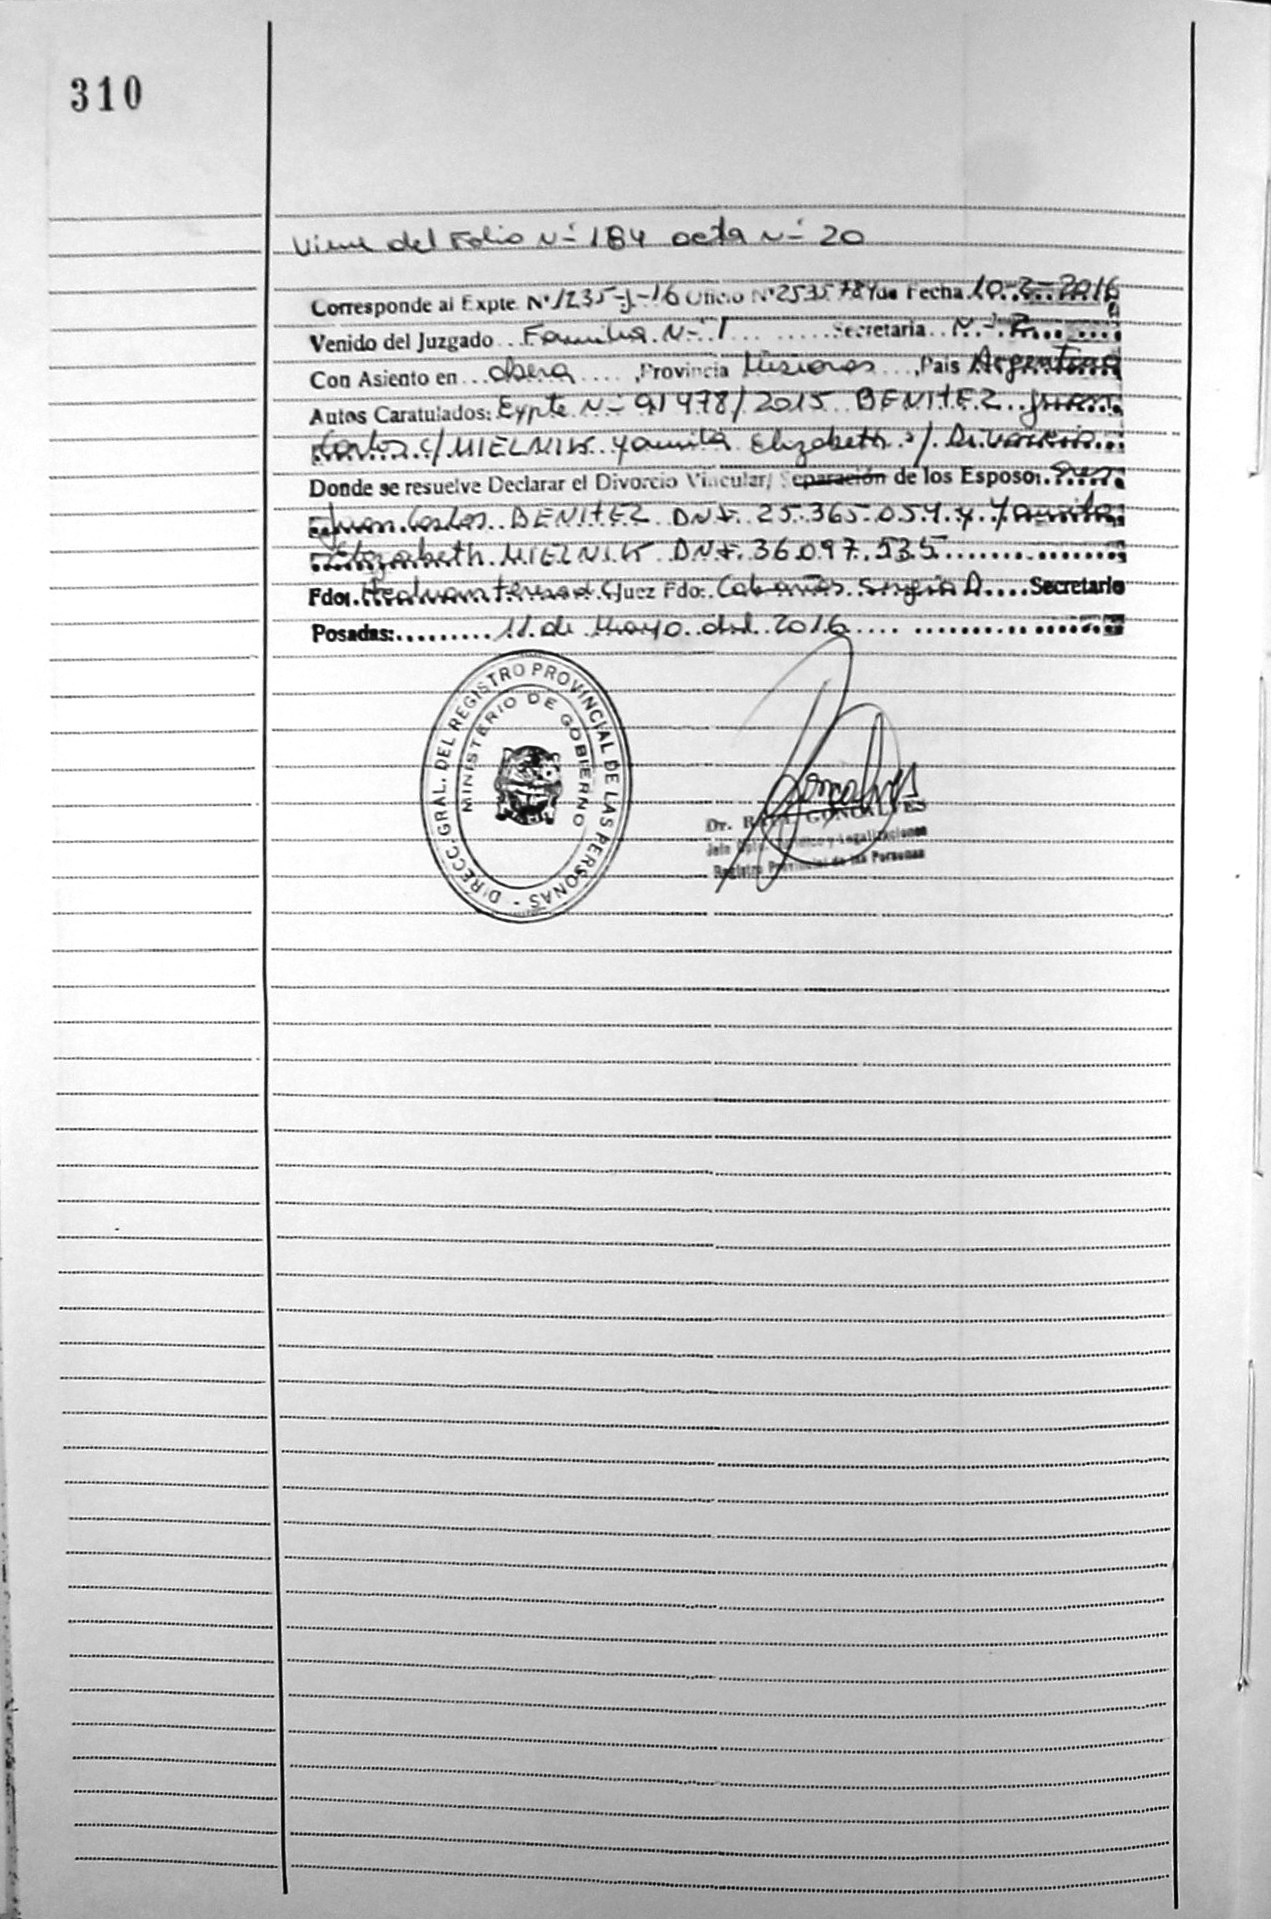 310
Viene del Folio N- 184 acta N- 20
Corresponde al Expte. Nº1235-J-16 Oficio Nº de Fecha 10-2-2016
Venido del Juzgado Familia N- 1 Secretaria N- 2
Con Asiento en Obera ,Provincia Misiones ,País Argentina
Autos Caratulados: Expte N- 91478/2015 BENITEZ Juan
Carlos c/ MIELNIK Yamita Elizabeth s/ Divorcio
Donde se resuelve Declarar el Divorcio Vincular/ Separación de los Esposo:
Juan Carlos BENITEZ DNI. 25.365.054 y Yamita
Elizabeth MIELNIK DNI. 36.097.535
Fdo: Juez Fdo: Sergio D. Secretario
Posadas: 11 de Mayo del 2016
DIRECC. GRAL. DEL REGISTRO PROVINCIAL DE LAS PERSONAS -
MINISTERIO DE GOBIERNO
Dr. GONCALVES
Jefe Dpto. y Legalizaciones
Registro Provincial de las Personas